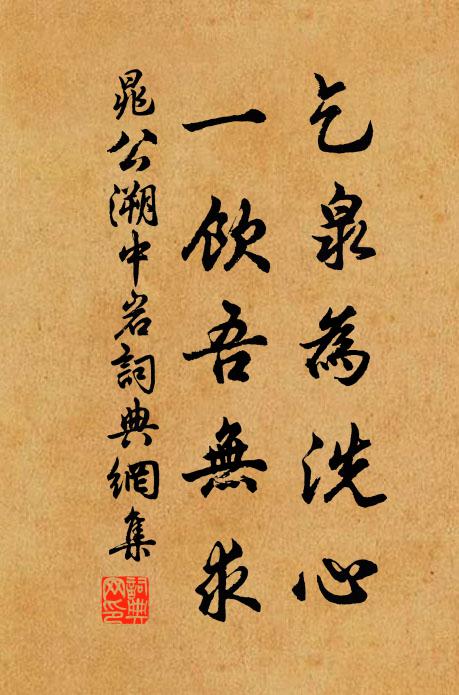 乞泉為洗心
一飲吾無求
晁公溯中岩詞典網集
詞典網印